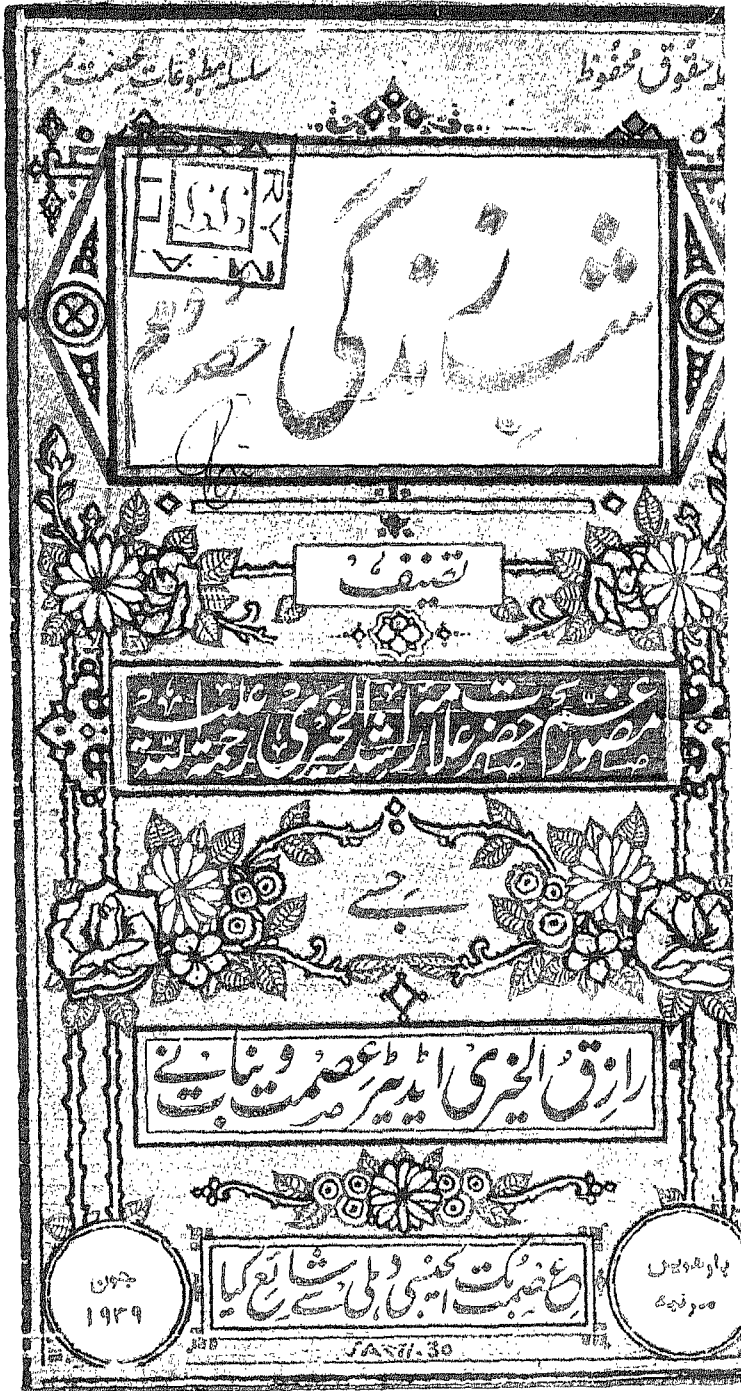 جملہ حقوق محفوظ
سلسلہ مطبوعات عصمت نمبر
شب زندگی
حصہ دوم
تصنیف
مصورِ غم حضرت علامہ راشد الخیری رحمۃ اللہ علیہ
جسے
رازق الخیری ایڈیٹر عصمت و بنات نے
عصمت بک ایجنسی دہلی سے شائع کیا
بارھویں
مرتبہ
جون
۱۹۳۹